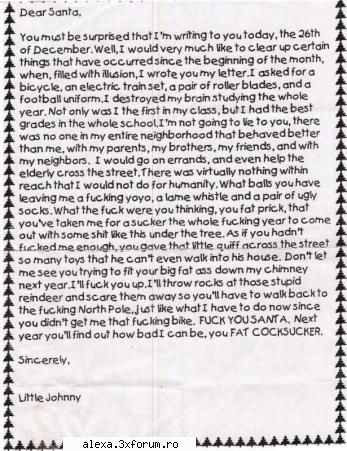 Dear Santa,
You must be surprised that I'm writing to you today, the 26th
of December. Well, I would very much like to clear up certain
things that have occurred since the beginning of the month,
when, filled with illusion, I wrote you my letter. I asked for a
bicycle, an electric train set, a pair of roller blades, and a
football uniform. I destroyed my brain studying the whole
year. Not only was I the first in my class, but I had the best
grades in the whole school. I'm not going to lie to you, there
was no one in my entire neighborhood that behaved better
than me, with my parents, my brothers, my friends, and with
my neighbors. I would go on errands, and even help the
elderly cross the street. There was virtually nothing within
reach that I would not do for humanity. What balls you have
leaving me a fucking yoyo, a lame whistle and a pair of ugly
socks. What the fuck were you thinking, you fat prick, that
you've taken me for a sucker the whole fucking year to come
out with some shit like this under the tree. As if you hadn't
fucked me enough, you gave that little quiff across the street
so many toys that he can't even walk into his house. Don't let
me see you trying to fit your big fat ass down my chimney
next year. I'll fuck you up. I'll throw rocks at those stupid
reindeer and scare them away so you'll have to walk back to
the fucking North Pole, just like what I have to do now since
you didn't get me that fucking bike. FUCK YOU SANTA. Next
year you'll find out how bad I can be, you FAT COCKSUCKER.
Sincerely,
Little Johnny
alexa.3xforum.ro